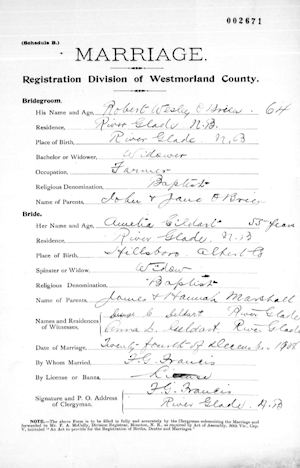 002671
(Schedule B.)
MARRIAGE.
Registration Division of Westmorland County.
Bridegroom.
His Name and Age, Robert Wesley O'Brien . 64
Residence, River Glade N.B.
Place of Birth, River Glade N.B
Bachelor or Widower, Widower
Occupation, Farmer
Religious Denomination, Baptist
Name of Parents, John & Jane O'Brien
Bride.
Her Name and Age, Amelia Geldart 55 years
Residence, River Glade. N.B
Place of Birth, Hillsboro Albert Co
Spinster or Widow, Widow
Religious Denomination, Baptist
Name of Parents, James & Hannah Marshall
Names and Residences of Witnesses, Geldart River Glade
Anna Geldart. River Glade
Date of Marriage, Twenty fourth December
By Whom Married, F.G. Francis
By License or Banns, License
Signature and P. O. Address of Clergyman. F.G. Francis
River Glade N.B
NOTE.—The above Form is to be filled in fully and accurately by the Clergyman solemnizing the Marriage and
forwarded to Mr. F. A. McCully, Division Registrar, Moncton, N. B., as required by Act of Assembly, 50th Vic., Cap.
V, intituled "An Act to provide for the Registration of Births, Deaths and Marriages."